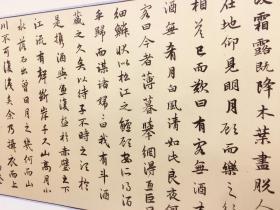 霜露既降木葉盡脫人
在地仰見明月顧而樂之行
答已而歎曰有客無酒
酒無肴月白風清如此良夜何
客曰今者薄暮舉網得魚巨口
細鱗狀似松江之鱸顧安所得酒
乎歸而謀諸婦婦曰我有斗酒
藏之久矣以待子不時之須於
是攜酒與魚復遊於赤壁之下
江流有聲斷岸千尺山高月小
水落石出曾日月之幾何而山
川不可復識矣予乃攝衣而上